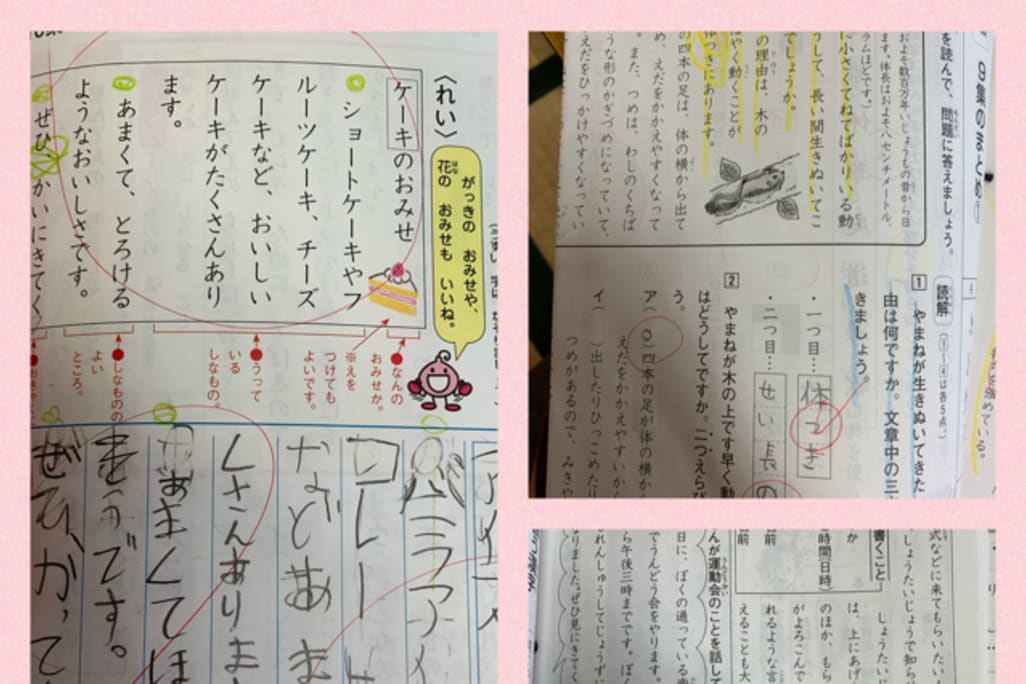 〈れい〉
ケーキのおみせ
ショートケーキやフ
ルーツケーキ、チーズ
ケーキなど、おいしい
ケーキがたくさんあり
ます。
あまくて、とろける
ようなおいしさです。
ぜひかいにきてく
がっきの おみせや、
花の おみせも いいね。
はな
なんの
おみせか。
※えを
つけても
よいです。
うって
いる
しなもの。
しなものの
よい
ところ。
くさんありま
などあま
あまくてほ
です。
ぜひ、かって
の集のまとめ①
を読んで、問題に答えましょう。
およそ数百万年いじょうもの昔から日
ます。体長はおよそ八センチメートル、
ラムほどです。)
に小さくてねてばかりいる動
うして、長い間生きぬいてこ
でしょうか。
の理由は、木の
やく動くことが
体つきにあります。
の四本の足は、体の横から出て
め、えだをかかえやすくなって
また、つめは、わしのくちば
うな形のかぎづめになっていて、
えだをひっかけやすくなってい
読解
(①～④は各5点)
1 やまねが生きぬいてきた
由は何ですか。文章中の三
きましょう。
・一つ目…
体つき
・二つ目…
せい長の
2 やまねが木の上です早く動
はどうしてですか。二つえらび
う。
ア(○)四本の足が体の横か
えだをかかえやすいか
イ( )出したりひっこめたり
つめがあるので、みきや
を強めている。
式などに来てもらいたい
しょうたいじょうで知ら
書くこと
時間(日時)
しょうたいじ
は、上にあげ
のほか、もら
がよろこんで
れるような言
えることも大
んが運動会のことを話して
日に、ぼくの通っている
でうんどう会をやります。
ら午後三時までです。ぼく
れんしゅうしてじょうず
なりました。ぜひ見にきてく